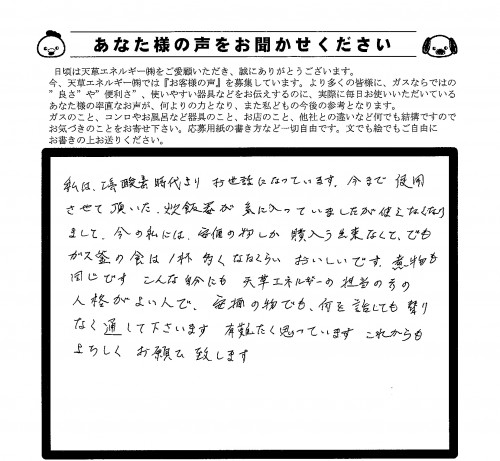 あなた様の声をお聞かせください
日頃は天草エネルギー㈱をご愛顧いただき、誠にありがとうございます。
今、天草エネルギー㈱では『お客様の声』を募集しています。より多くの皆様に、ガスならではの
"良さ"や"便利さ"、使いやすい器具などをお伝えするのに、実際に毎日お使いいただいている
あなた様の率直なお声が、何よりの力となり、また私どもの今後の参考となります。
ガスのこと、コンロやお風呂など器具のこと、お店のこと、他社との違いなど何でも結構ですので
お気づきのことをお寄せ下さい。応募用紙の書き方など一切自由です。文でも絵でもご自由に
お書きの上お送りください。
私は、酸素時代より お世話になっています。今まで 使用
させて頂いた、炊飯器が 気に入っていましたが使えなくなり
まして、今の私には、安価の物しか 購入出来なくて、でも
ガス釜の食は1杯多くなるくらい おいしいです。煮物も
同じです こんな自分にも 天草エネルギーの担当の方の
人格がよい人で、安価の物でも、何を話しても
なく通して下さいます 有難たく思っています これからも
よろしく お願い致します